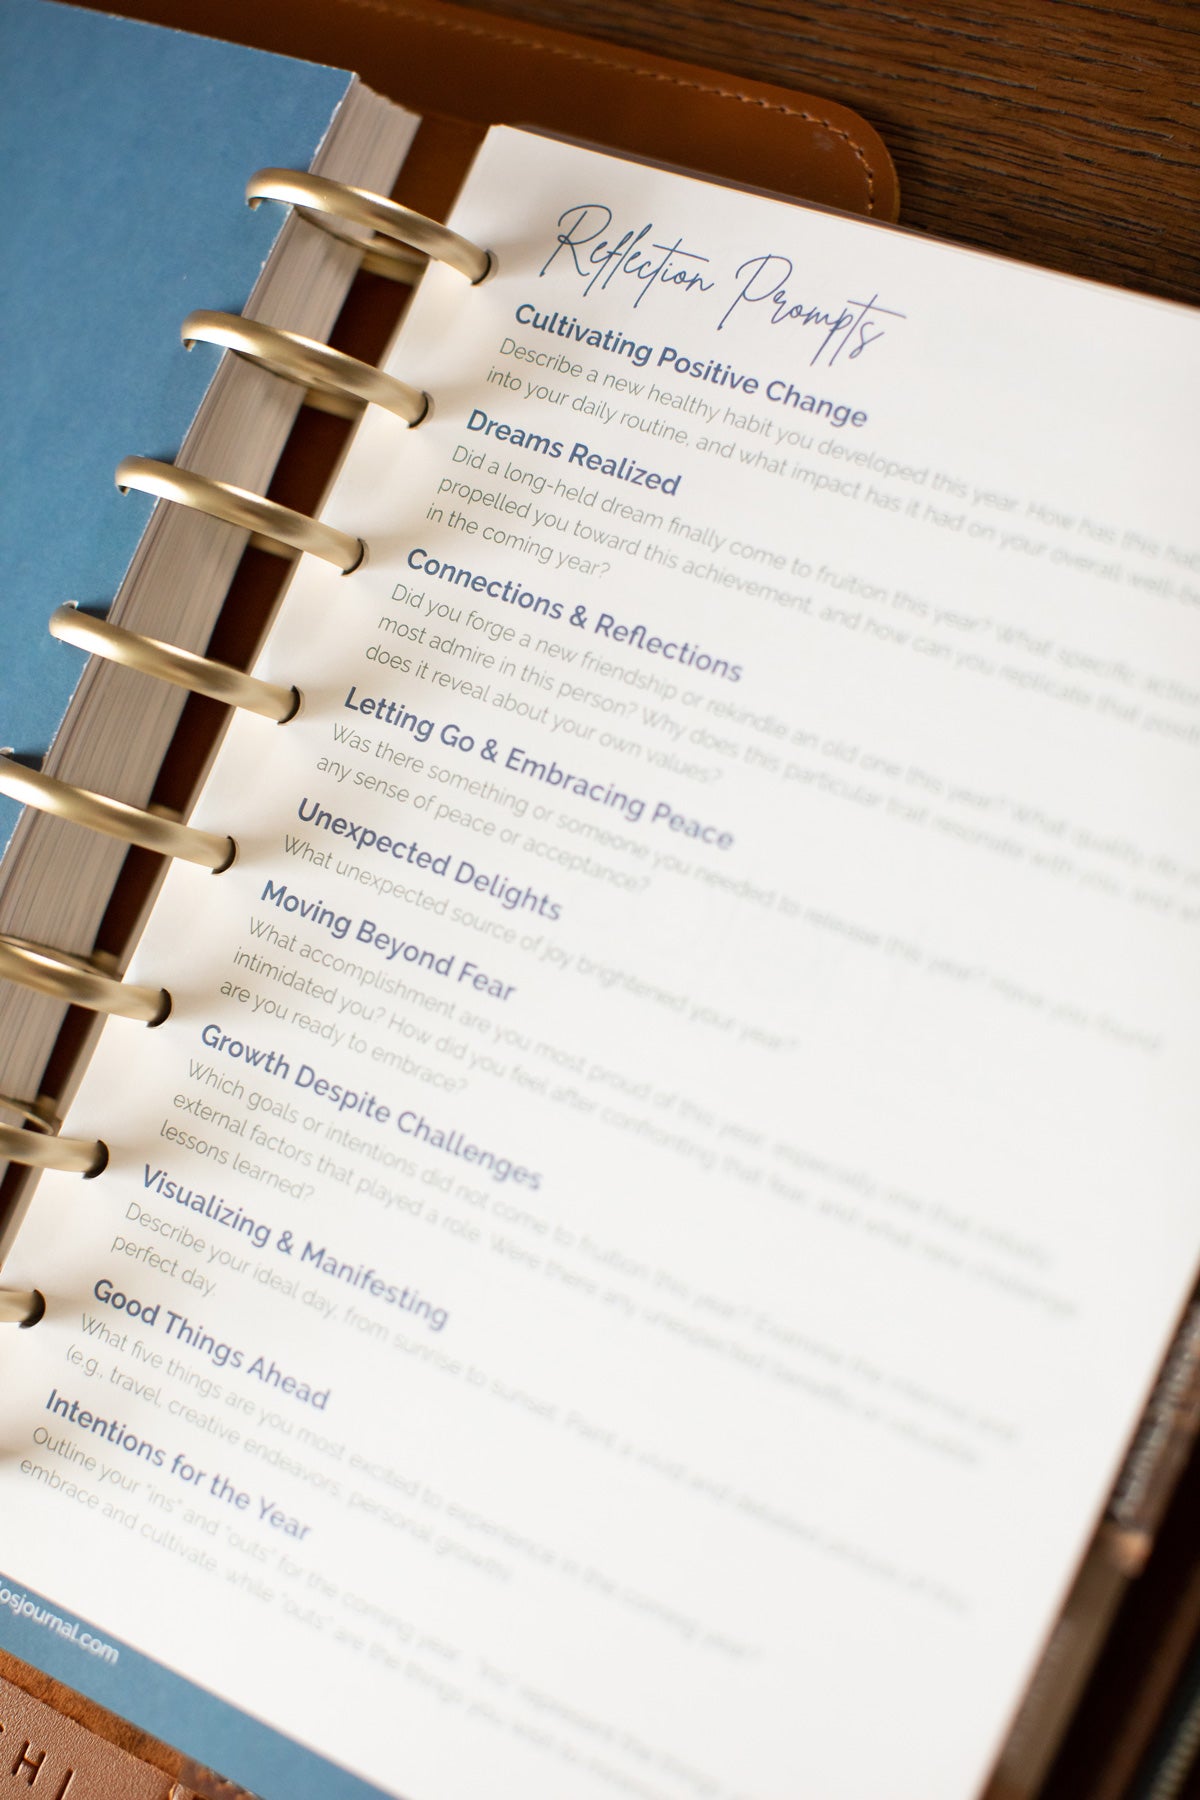 Reflection Prompts
Cultivating Positive Change
Describe a new healthy habit you developed this year. How has this
into your daily routine, and what impact has it had on your overall well-
Dreams Realized
Did a long-held dream finally come to fruition this year? What specific
propelled you toward this achievement, and how can you replicate that
in the coming year?
Connections & Reflections
Did you forge a new friendship or rekindle an old one this year? What quality do
most admire in this person? Why does this particular trait resonate with you, and
does it reveal about your own values?
Letting Go & Embracing Peace
Was there something or someone you needed to release this year? Have you found
any sense of peace or acceptance?
Unexpected Delights
What unexpected source of joy brightened your year?
Moving Beyond Fear
What accomplishment are you most proud of this year, especially one that initially
intimidated you? How did you feel after confronting that fear, and what new challenge
are you ready to embrace?
Growth Despite Challenges
Which goals or intentions did not come to fruition this year? Examine the internal and
external factors that played a role. Were there any unexpected benefits or valuable
lessons learned?
Visualizing & Manifesting
Describe your ideal day, from sunrise to sunset. Paint a vivid and detailed picture of this
perfect day.
Good Things Ahead
What five things are you most excited to experience in the coming year?
(e.g., travel, creative endeavors, personal growth)
Intentions for the Year
Outline your "ins" and "outs" for the coming year. "Ins" represent the things
embrace and cultivate, while "outs" are the things you want to
osjournal.com